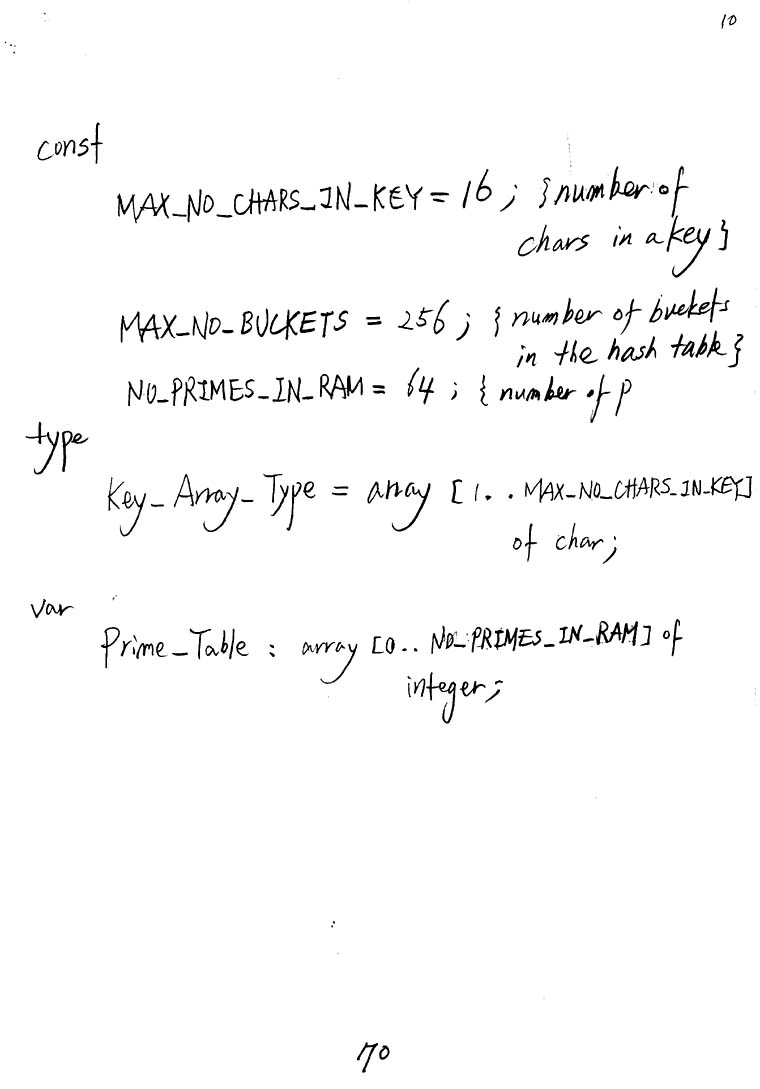 10
const
MAX_NO_CHARS_IN_KEY = 16 ; {number of
chars in a key}
MAX_NO_BUCKETS = 256 ; {number of buckets
in the hash table}
NO_PRIMES_IN_RAM = 64 ; {number of p
type
Key_Array_Type = array [1..MAX_NO_CHARS_IN_KEY]
of char;
var
Prime_Table : array [0..NO_PRIMES_IN_RAM] of
integer;
70